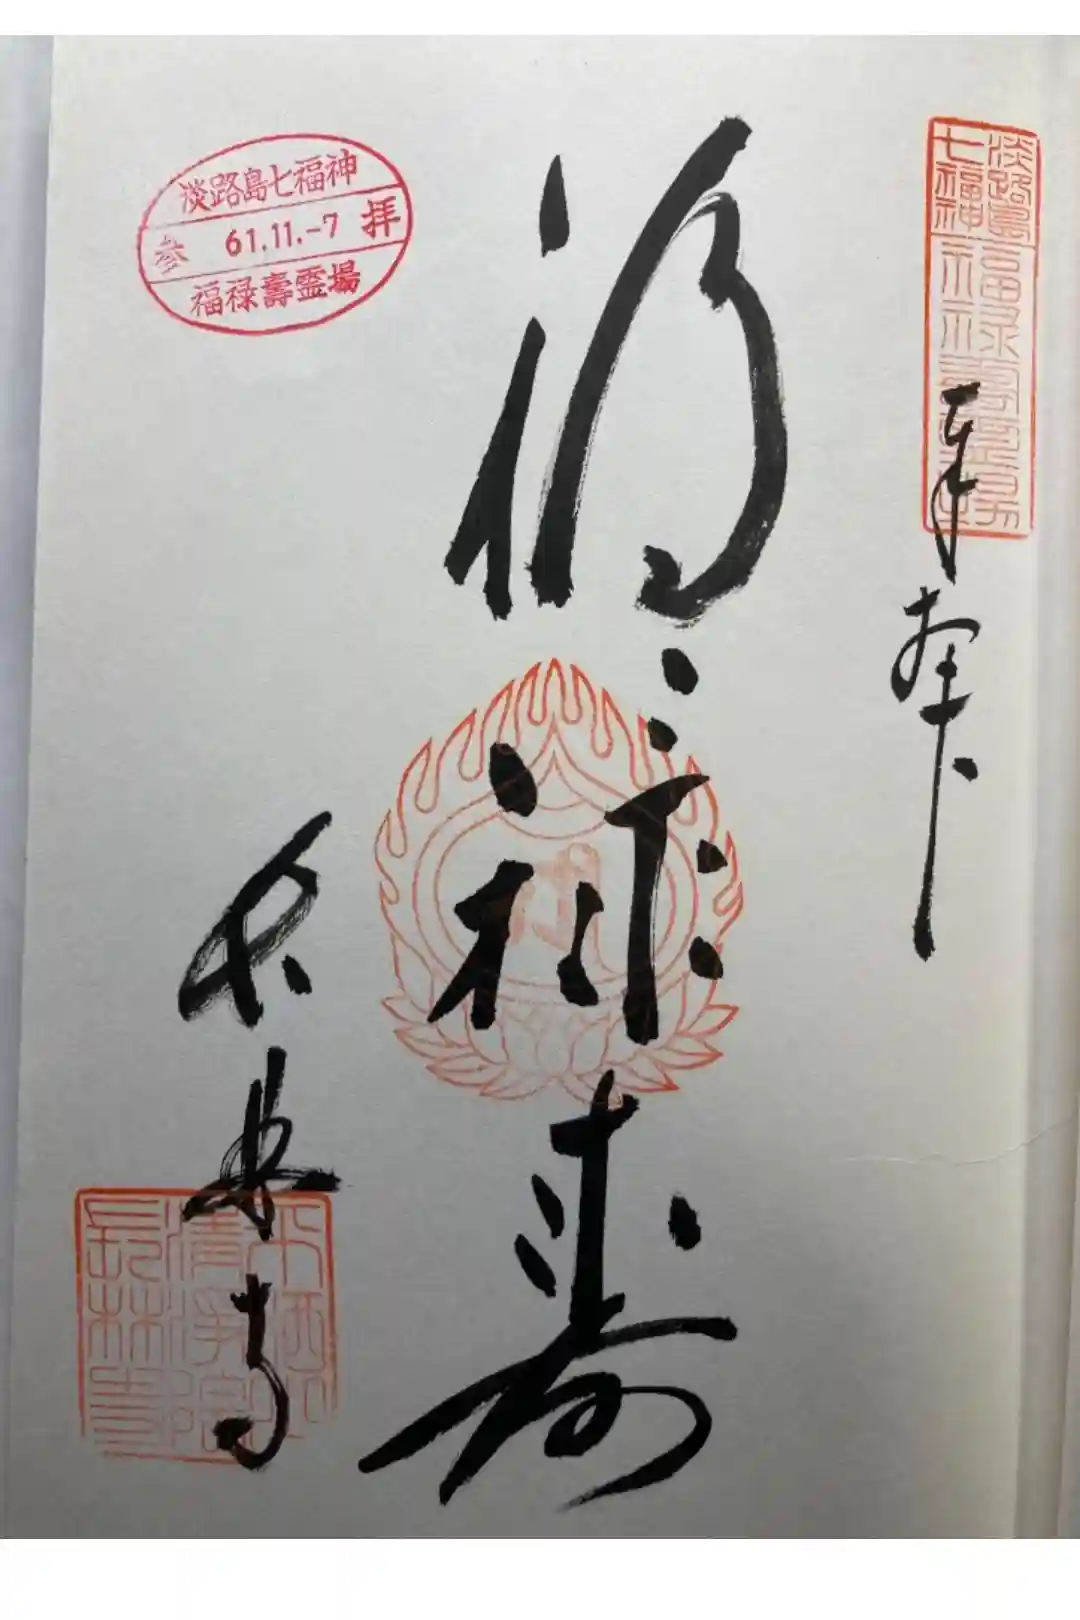 淡路島七福神
福禄壽霊場
奉拝
福禄寿
長林寺
淡路島七福神
参 61.11.-7 拝
福禄壽霊場
清浄院
長林寺